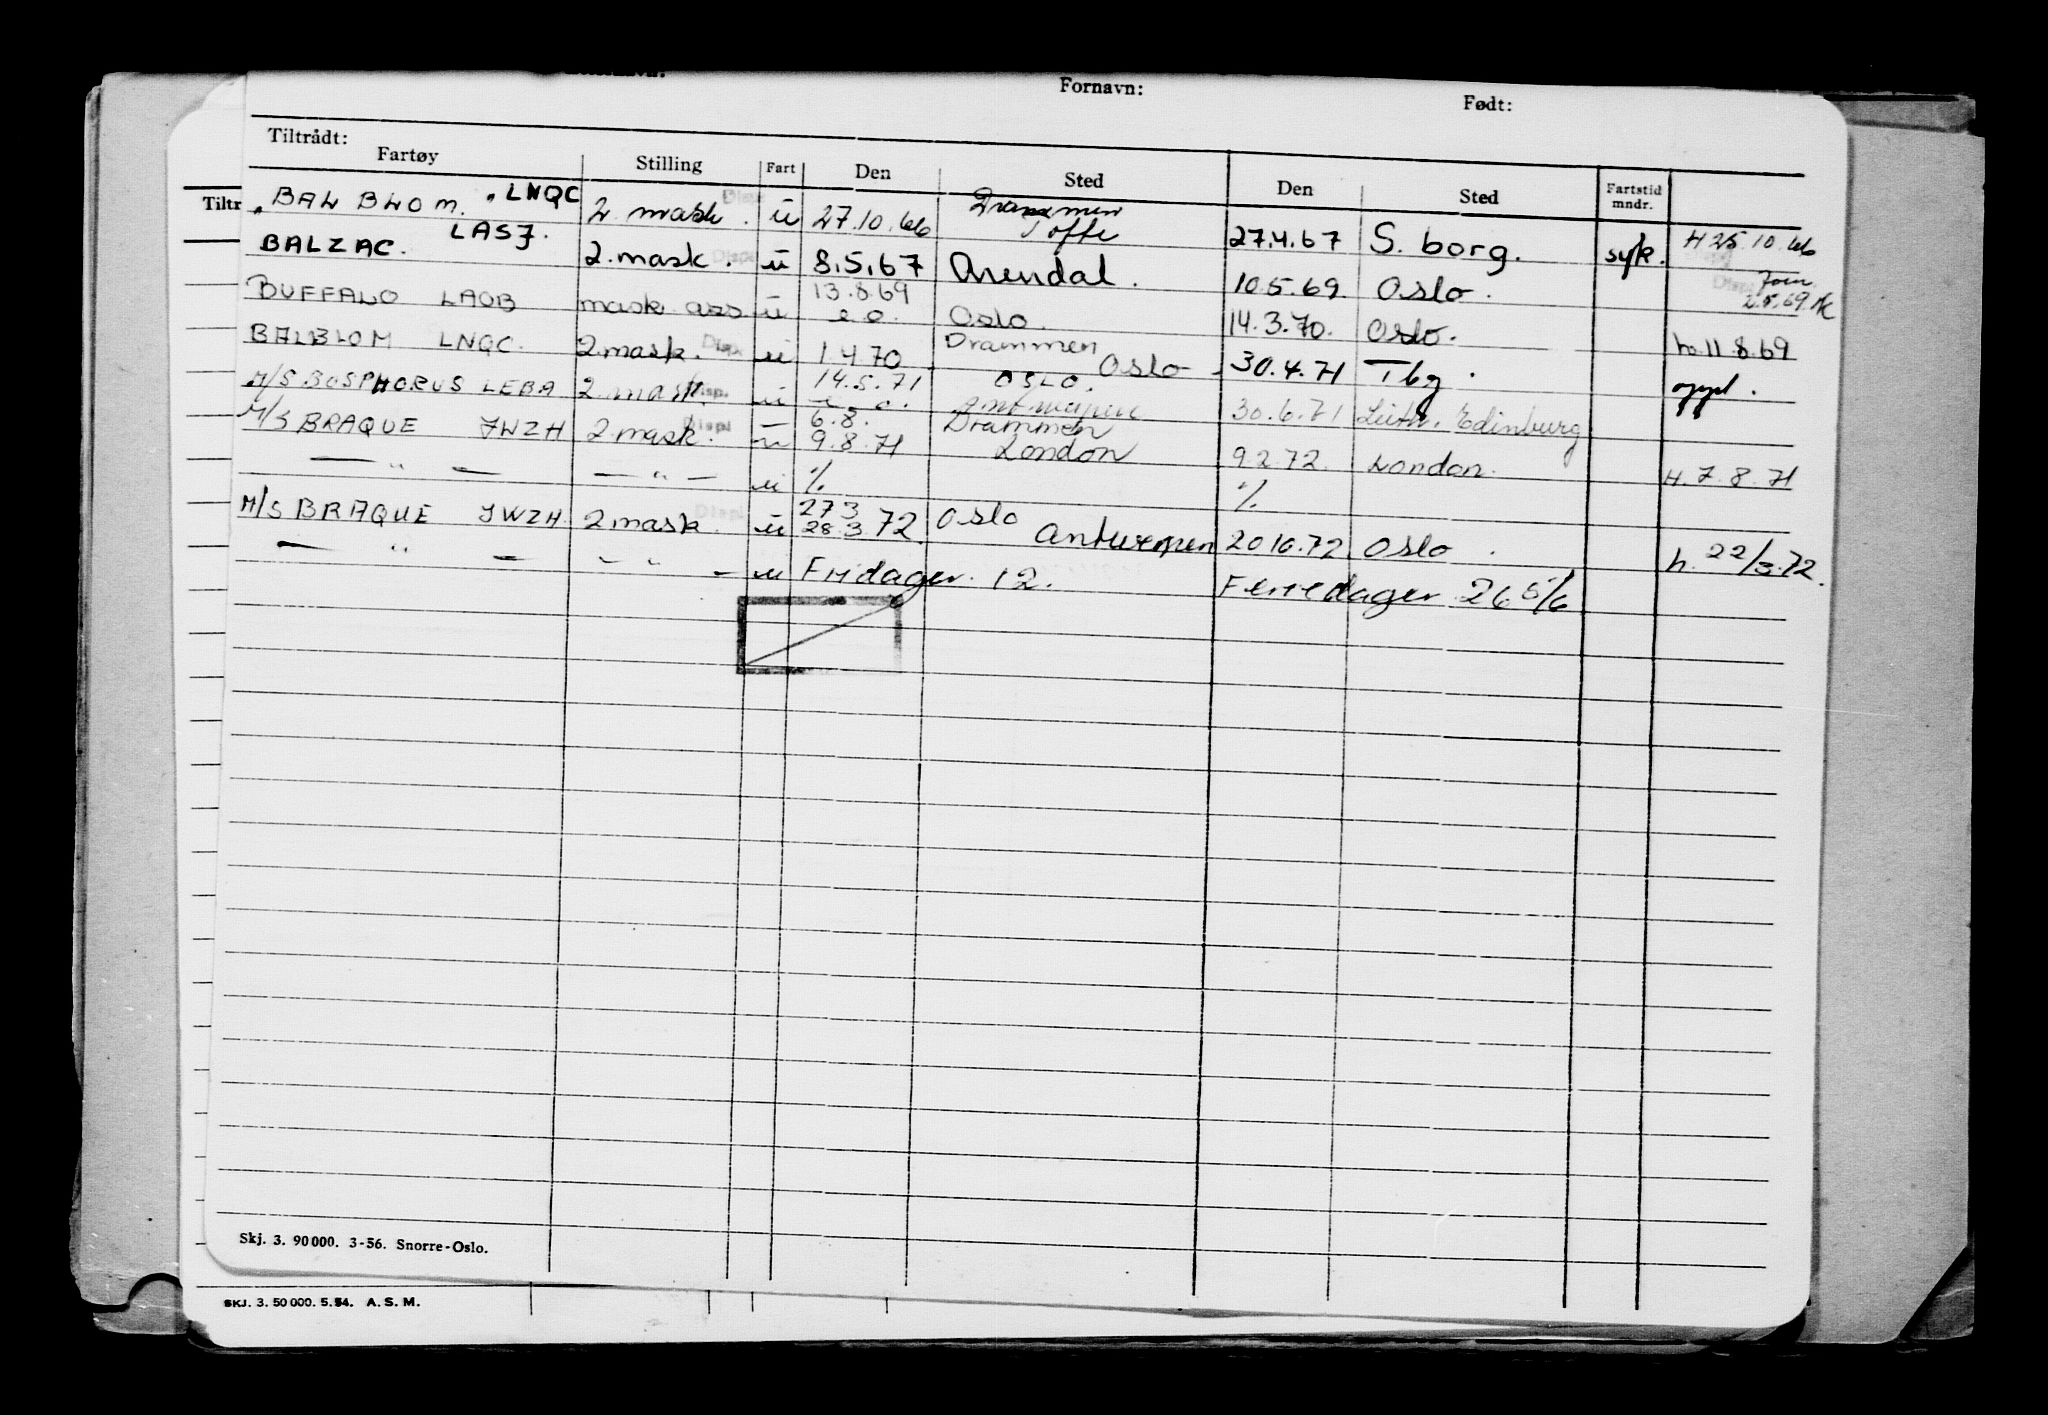 Fornavn: Født:
Tiltrådt:
Fartøy Stilling Fart Den Sted Den Sted Fartstid mndr.
Tiltr
"BALBLOM. "LNQC 2 mask. u 27.10.66 Drammen Tofte 27.4.67 S. borg. syk. H 25.10.66
BALZAC. LASJ. 2. mask. u 8.5.67 Arendal. 10.5.69 Oslo. 2.5.69
BUFFALO LAOB mask ass u 13.8.69 e.o. Oslo. 14.3.70. Oslo. h. 11.8.69
BALBLOM LNQC. 2 mask. u 1.4.70 Drammen Oslo 30.4.71 Tbg. oppl.
M/S BOSPHORUS LEBA 2 mask. Disp. u 14.5.71 e.o. OSLO. Antwerpen 30.6.71 Leith, Edinburg
M/S BRAQUE JWZH 2 mask. Displ u 6.8. 9.8.71 Drammen London 9.2.72. London. H. 7.8.71
— " — — " — u % %
M/S BRAQUE JWZH 2 mask. u 27.3 28.3.72. Oslo Antwerpen 20.10.72. Oslo. h. 22/3.72.
— " — - " — u Fridager. 12. Feriedager 26 5/6
Skj. 3. 90000. 3-56. Snorre-Oslo.
SKJ. 3. 50000. 5.54. A. S. M.